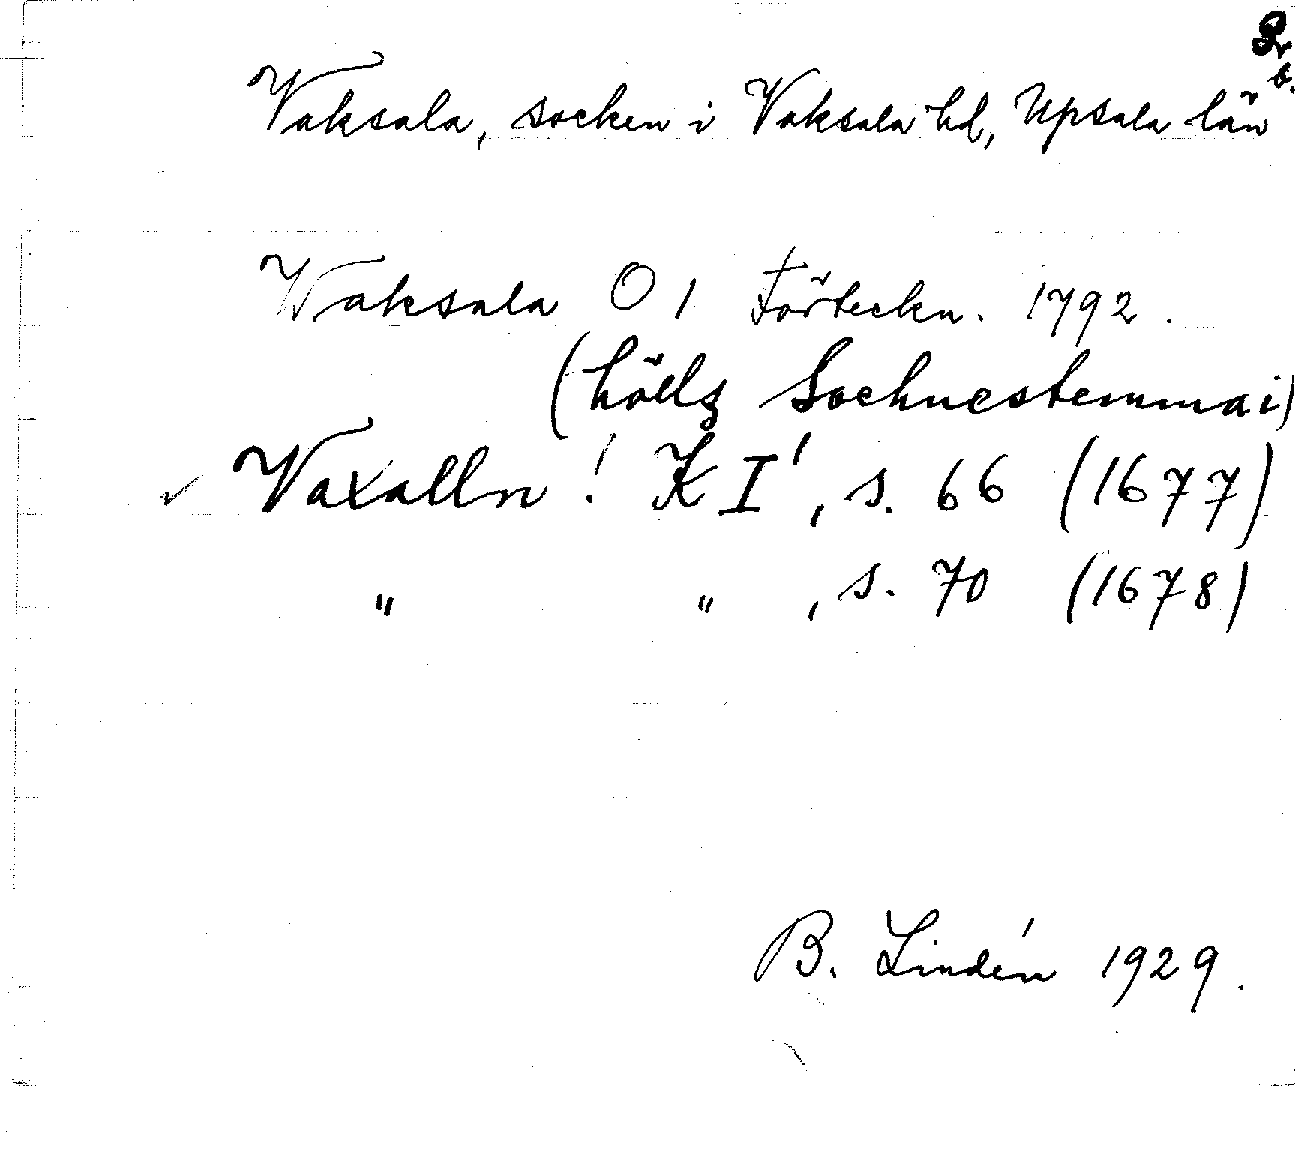 Vaksala, socken i Vaksala hd, Upsala län
Waksala O I Förteckn. 1792.
(hölls Sochnestemma i
✓ Vaxalln! K I', s. 66 (1677)
" " , s. 70 (1678)
B. Lindén 1929.